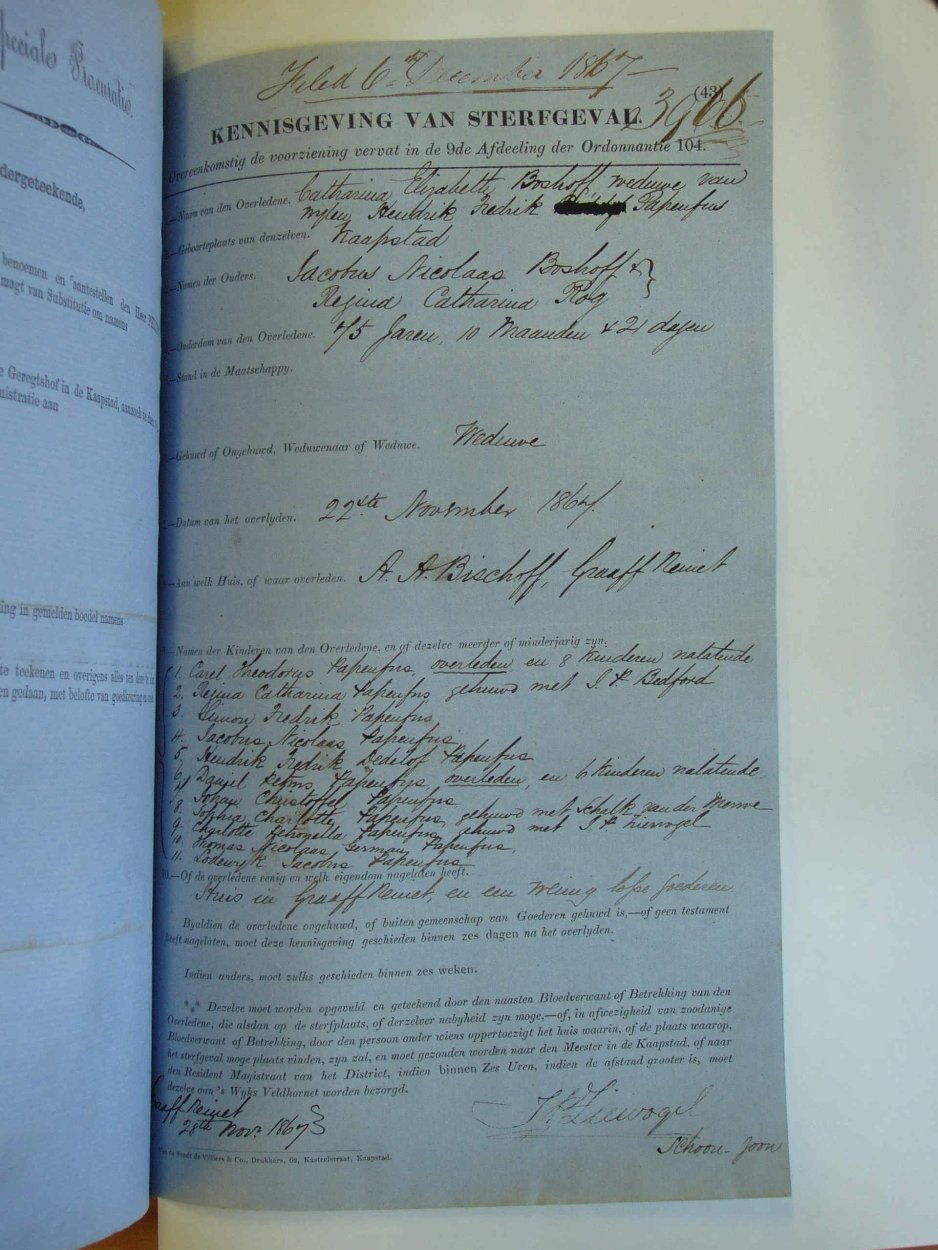 Speciale Procuratie.
ndergeteekende,
benoemen en aantestellen den Heer
magt van Substitutie om namens
e Geregtshof in de Kaapstad,
nistratie aan
ing in gemelden boedel namens
te teekenen en overigens alles ten
en gedaan, met belofte van goedkeuring
Filed 6th December 1867
(43)
3966
KENNISGEVING VAN STERFGEVAL.
Overeenkomstig de voorziening vervat in de 9de Afdeeling der Ordonnantie 104.
—Naam van den Overledene. Catharina Elizabeth Boshoff, weduwe van
wylen Hendrik Fredrik Papenfus
—Geboorteplaats van denzelven. Kaapstad
—Namen der Ouders. Jacobus Nicolaas Boshoff &
Regina Catharina Rog
—Ouderdom van den Overledene. 75 Jaren, 10 Maanden & 21 dagen
—Stand in de Maatschappy.
—Gehuwd of Ongehuwd, Weduwenaar of Weduwe. Weduwe
—Datum van het overlyden. 22ste November 1867.
—Aan welk Huis, of waar overleden. A. A. Bischoff, Graaff Reinet
—Namen der Kinderen van den Overledene, en of dezelve meerder of minderjarig zyn.
1. Carel Theodorus Papenfus, overleden en 8 kinderen nalatende
2. Regina Catharina Papenfus gehuwd met J. P. Bedford
3. Simon Fredrik Papenfus
4. Jacobus Nicolaas Papenfus
5. Hendrik Fredrik Dedelof Papenfus
6. Daniel Petrus Papenfus, overleden, en 6 kinderen nalatende.
7. Johan Christoffel Papenfus
8. Sophia Charlotte Papenfus, gehuwd met Schalk van der Merwe
9. Charlotte Petronella Papenfus, gehuwd met J. P. Ziervogel
10. Thomas Nicolaas German Papenfus,
11. Lodewyk Jacobus Papenfus
10.—Of de overledene eenig en welk eigendom nagelaten heeft.
Huis in Graaff Reinet, en een weinig losse goederen
Byaldien de overledene ongehuwd, of buiten gemeenschap van Goederen gehuwd is,—of geen testament
heeft nagelaten, moet deze kennisgeving geschieden binnen zes dagen na het overlyden.
Indien anders, moet zulks geschieden binnen zes weken.
*** Dezelve moet worden opgevuld en geteekend door den naasten Bloedverwant of Betrekking van den
Overledene, die alsdan op de sterfplaats, of derzelver nabyheid zyn moge,—of, in afwezigheid van zoodanige
Bloedverwant of Betrekking, door den persoon onder wiens oppertoezigt het huis waarin, of de plaats waarop,
het sterfgeval moge plaats vinden, zyn zal, en moet gezonden worden naar den Meester in de Kaapstad, of naar
den Resident Magistraat van het District, indien binnen Zes Uren, indien de afstand grooter is, moet
dezelve aan 's Wyks Veldkornet worden bezorgd.
Graaff Reinet
28th Novr. 1867
J P Ziervogel
Schoon-zoon
Van de Sandt de Villiers & Co., Drukkers, 62, Kasteelstraat, Kaapstad.